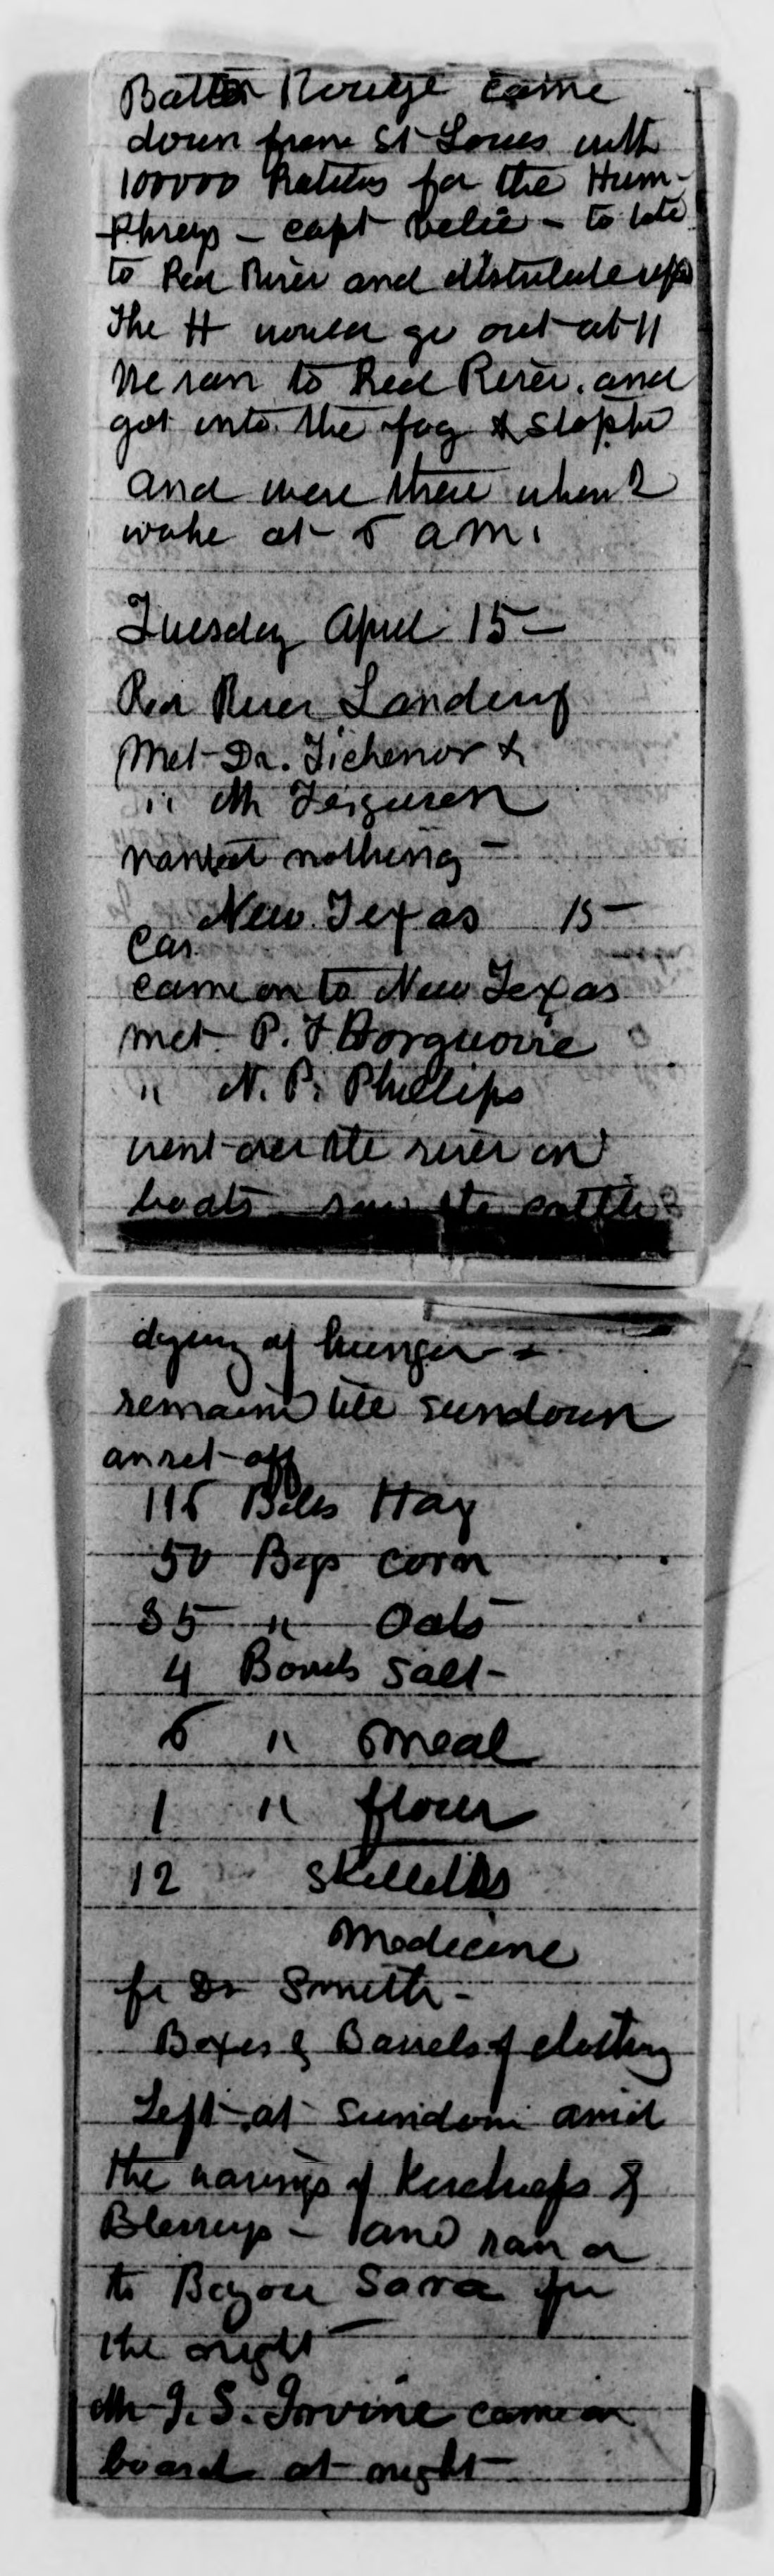 Batton Rouge came
down from St Louis with
100000 Rations for the Hum-
phreys - capt - to take
to Red River and distribute
The H would go out at 11
We ran to Red River. and
got into the fog & stopped
and were there when I
woke at 5 a m.
Tuesday April 15 -
Red River Landing
Met Dr. Tichenor &
" Mr Ferguson
wanted nothing -
New Texas 15 -
came on to New Texas
met P. F
" N. P. Phillips
went over the river on
boats saw the cattle
dying of hunger -
remained till sundown
an set off
115 Bales Hay
50 Bags corn
35 " Oats
4 Barrels Salt -
5 " meal
1 " flour
12 Skilletts
Medicine
for Dr Smith -
Boxes & Barrels of clothing
Left at sundown amid
the wavings of Kerchiefs &
Blessings - and ran on
to Bayou Sara for
the night -
Mr J. S. Irvine came on
board at night -